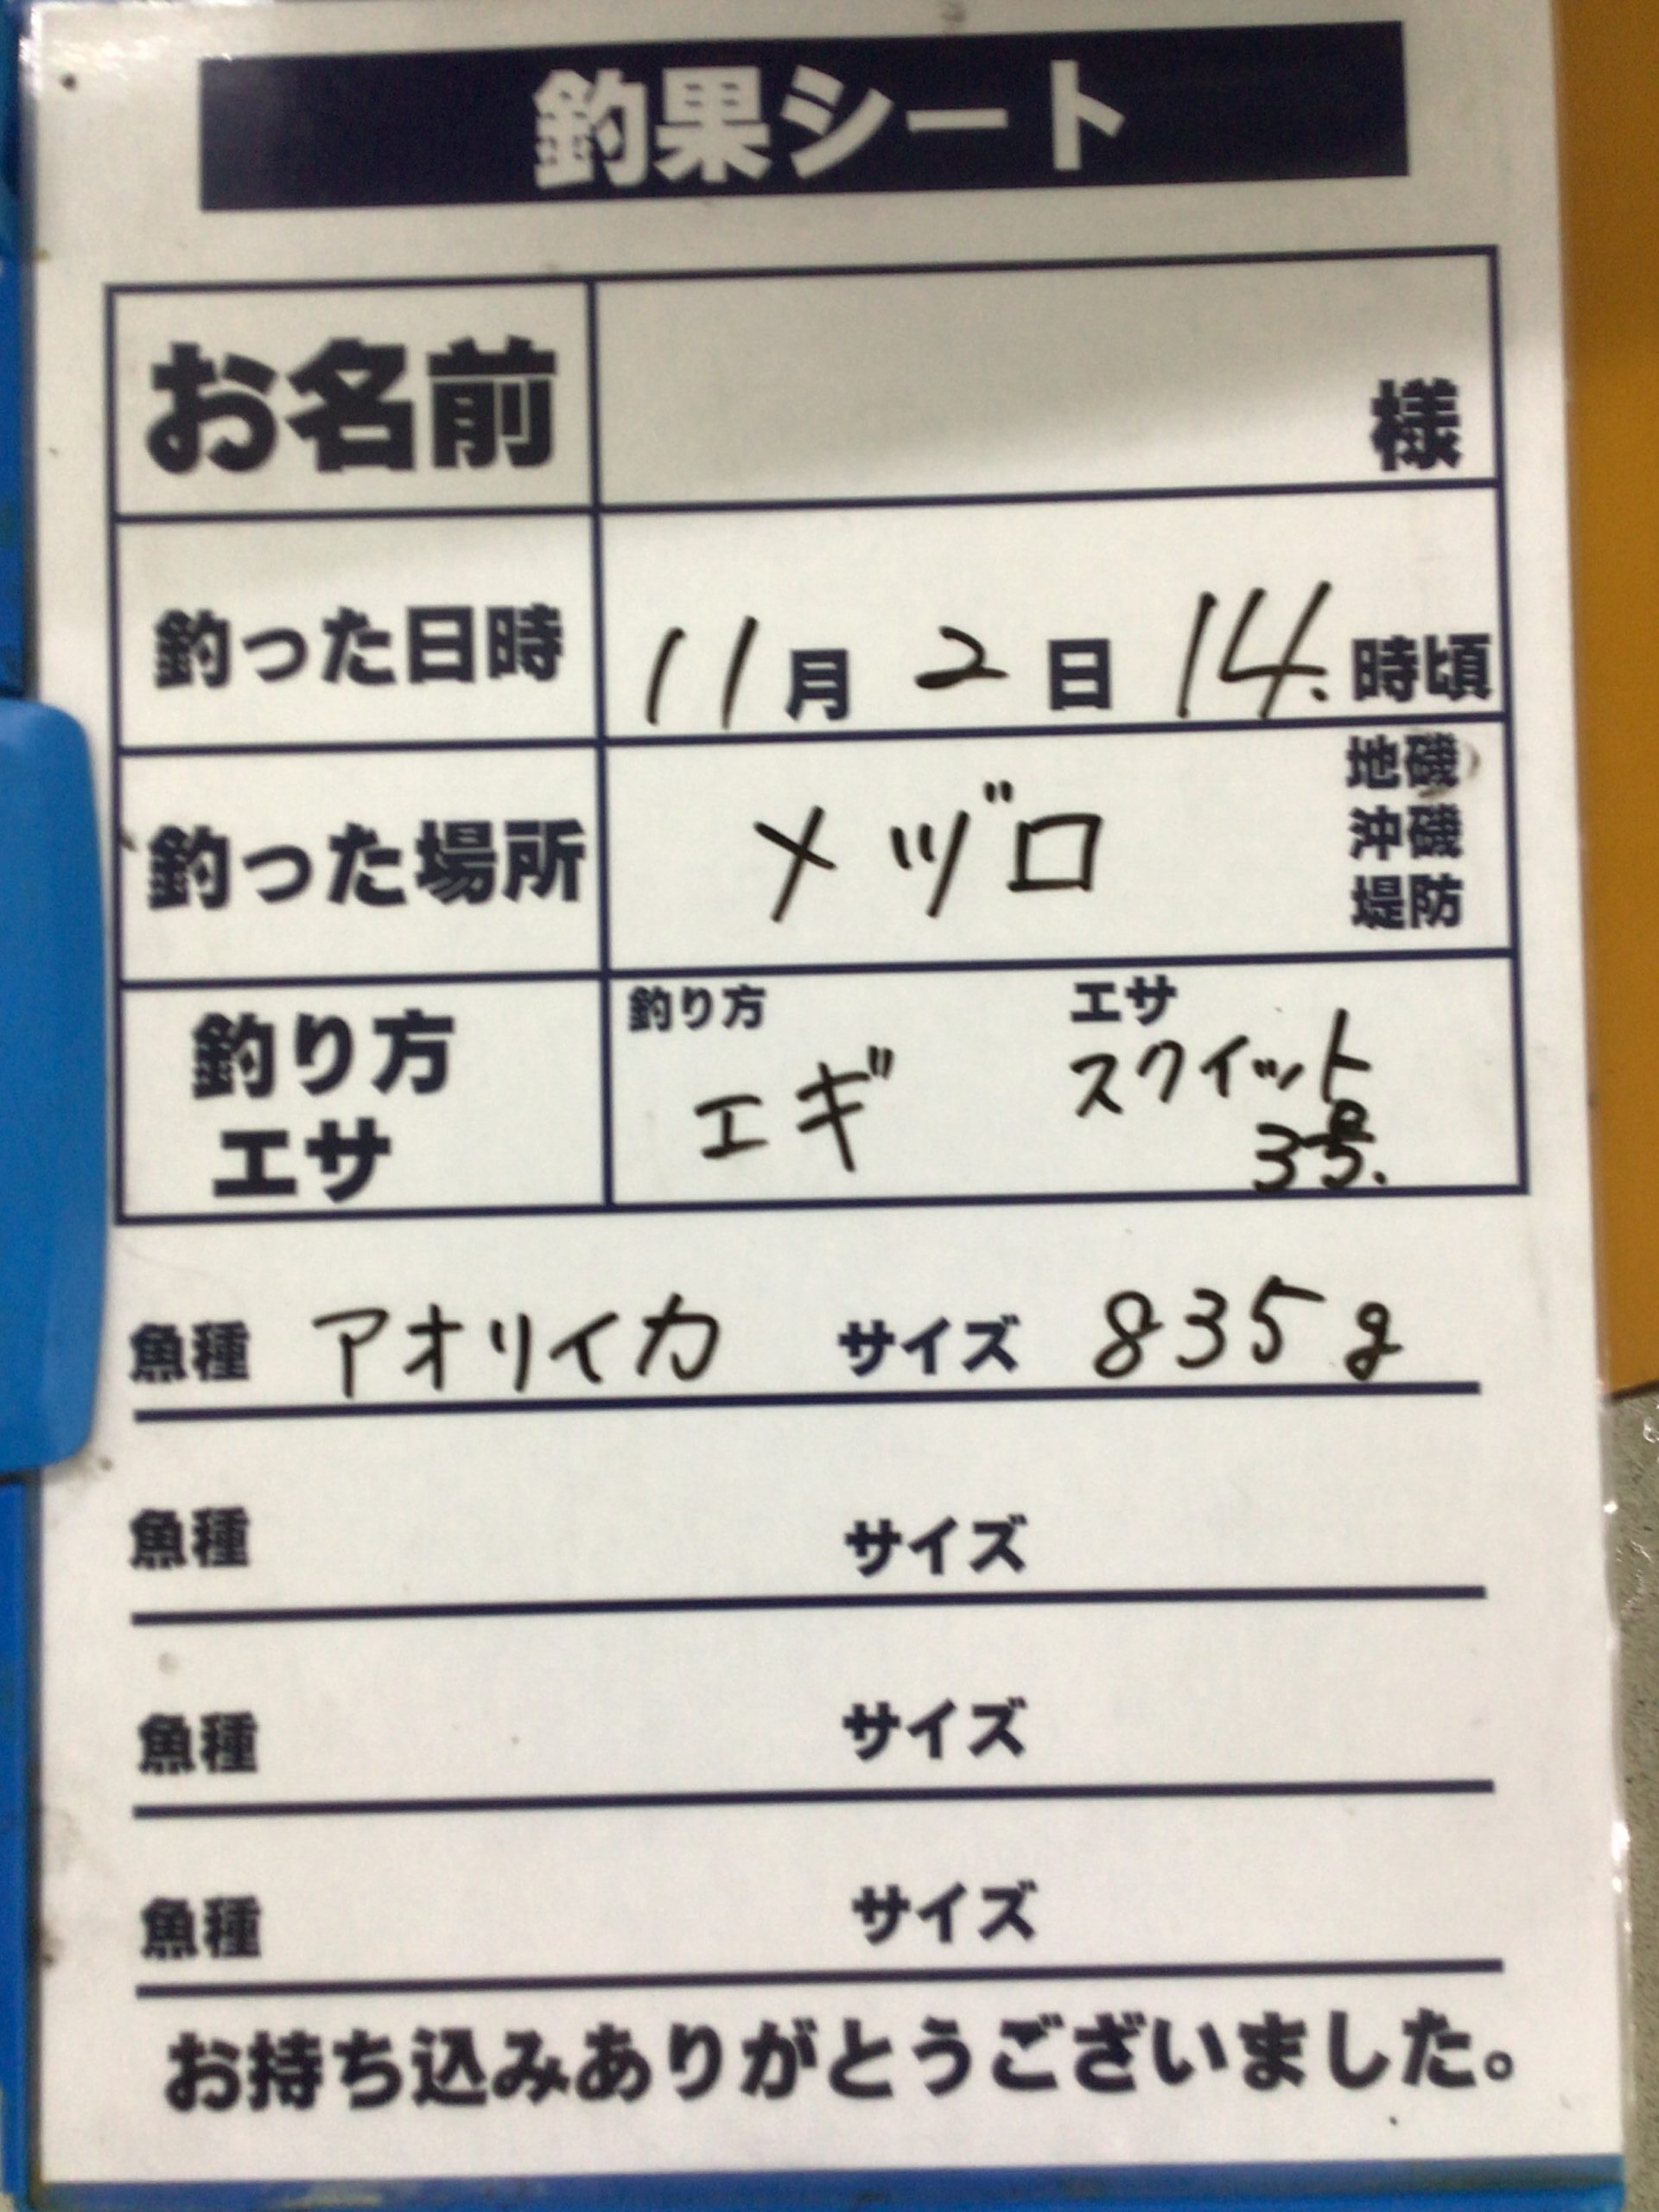 釣果シート
お名前 様
釣った日時 11月2日14.時頃
釣った場所 メヅロ 地磯
沖磯
堤防
釣り方 エサ
釣り方 エギ スクイット
エサ 3号.
魚種 アオリイカ サイズ 835g
魚種 サイズ
魚種 サイズ
魚種 サイズ
お持ち込みありがとうございました。